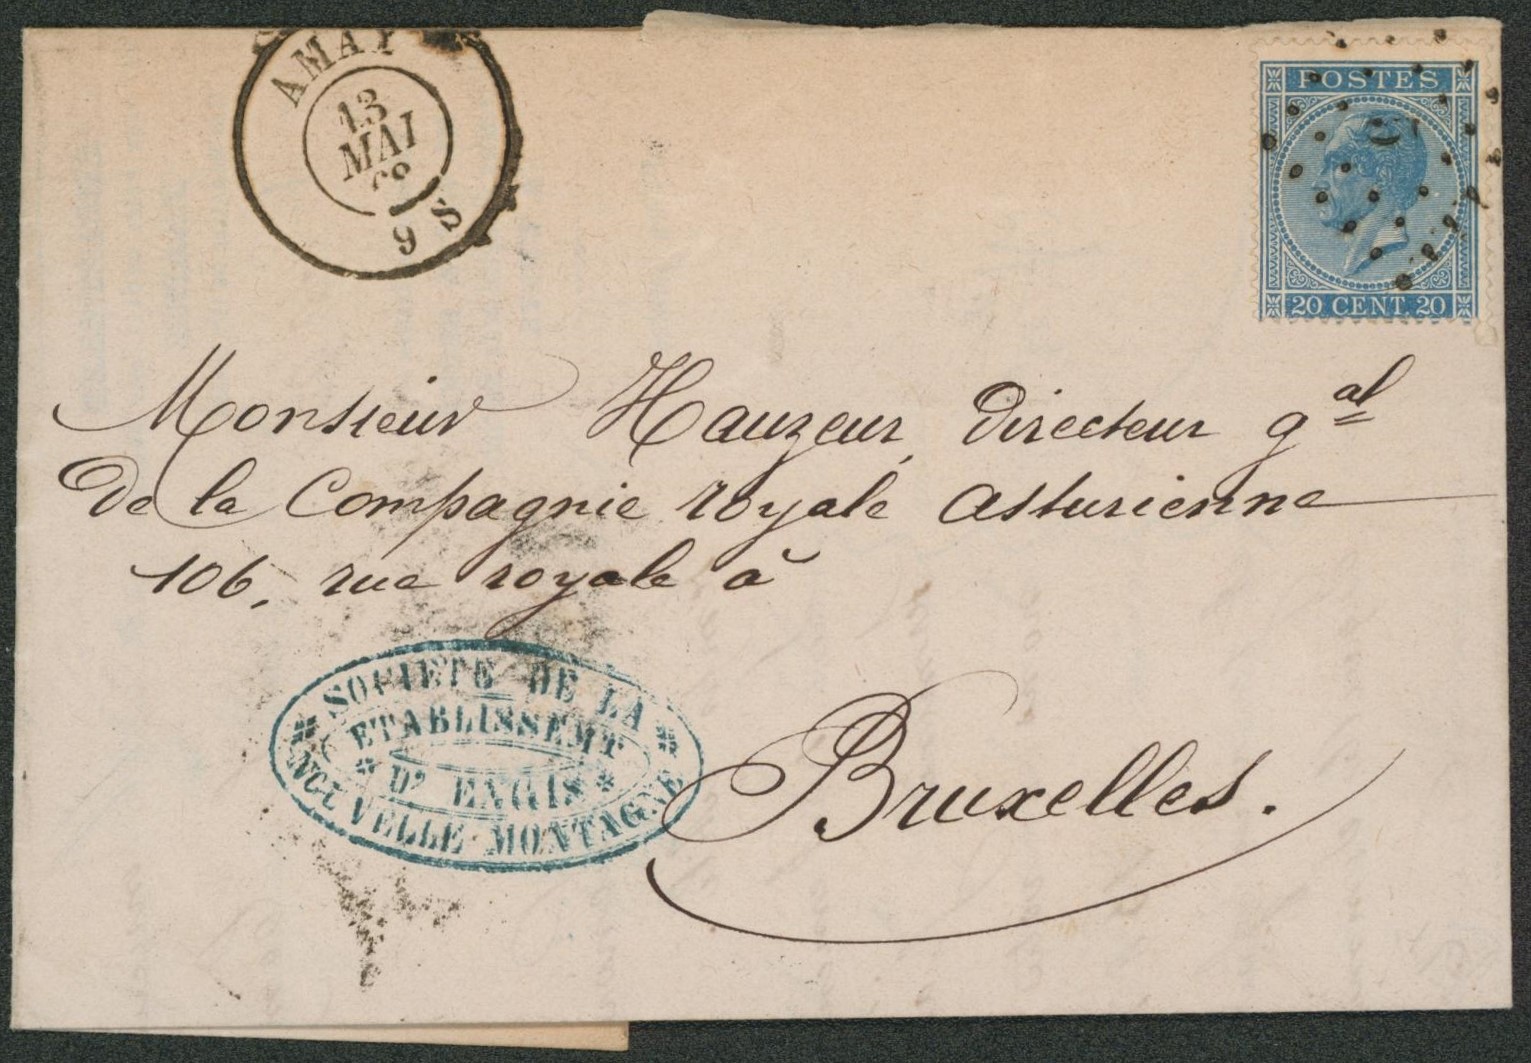 AMAY
13
MAI
68
9 S
POSTES
20 CENT. 20
Monsieur Hauzeur, directeur g^al
De la Compagnie royale asturienne
106, rue royale à
Bruxelles.
SOCIETE DE LA
ETABLISSEMT
D' ENGIS
NOUVELLE-MONTAGNE